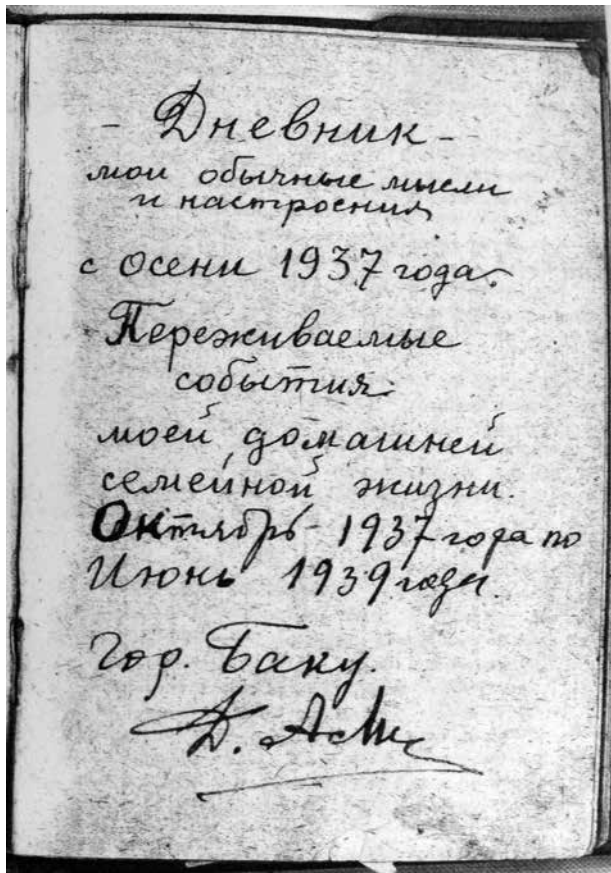 - Дневник -
мои обычные мысли
и настроения
с осени 1937 года.
Переживаемые
события
моей домашней
семейной жизни.
Октябрь - 1937 года по
Июнь 1939 года.
гор. Баку.
Д.